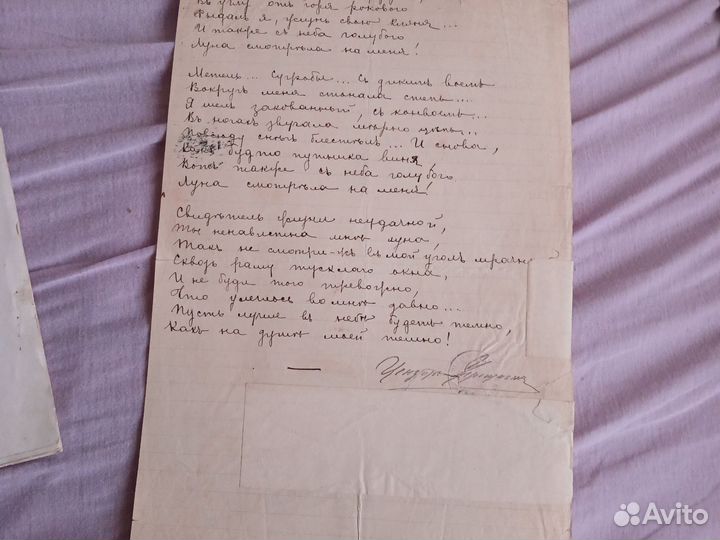 Въ углу отъ горя рокового
Рыдалъ я, жизнь свою кляня...
И также съ неба голубого
Луна смотрѣла на меня!
Метель... Сугробы... Съ дикимъ воемъ
Вокругъ меня стонала степь...
Я шелъ закованный, съ конвоемъ...
Въ ногахъ звучала мѣрно цѣпь...
Повсюду снѣгъ блестѣлъ... И снова,
будто путника виня,
Вотъ также съ неба голубого
Луна смотрѣла на меня!
Свидѣтель жизни неудачной,
Ты ненавистна мнѣ луна,
Такъ не смотри-жъ въ мой уголъ мрачн
Сквозь раму тусклаго окна,
И не буди того тревожно,
Что улеглось во мнѣ давно...
Пусть лучше въ небѣ будетъ темно,
Какъ на душѣ моей темно!
Avito